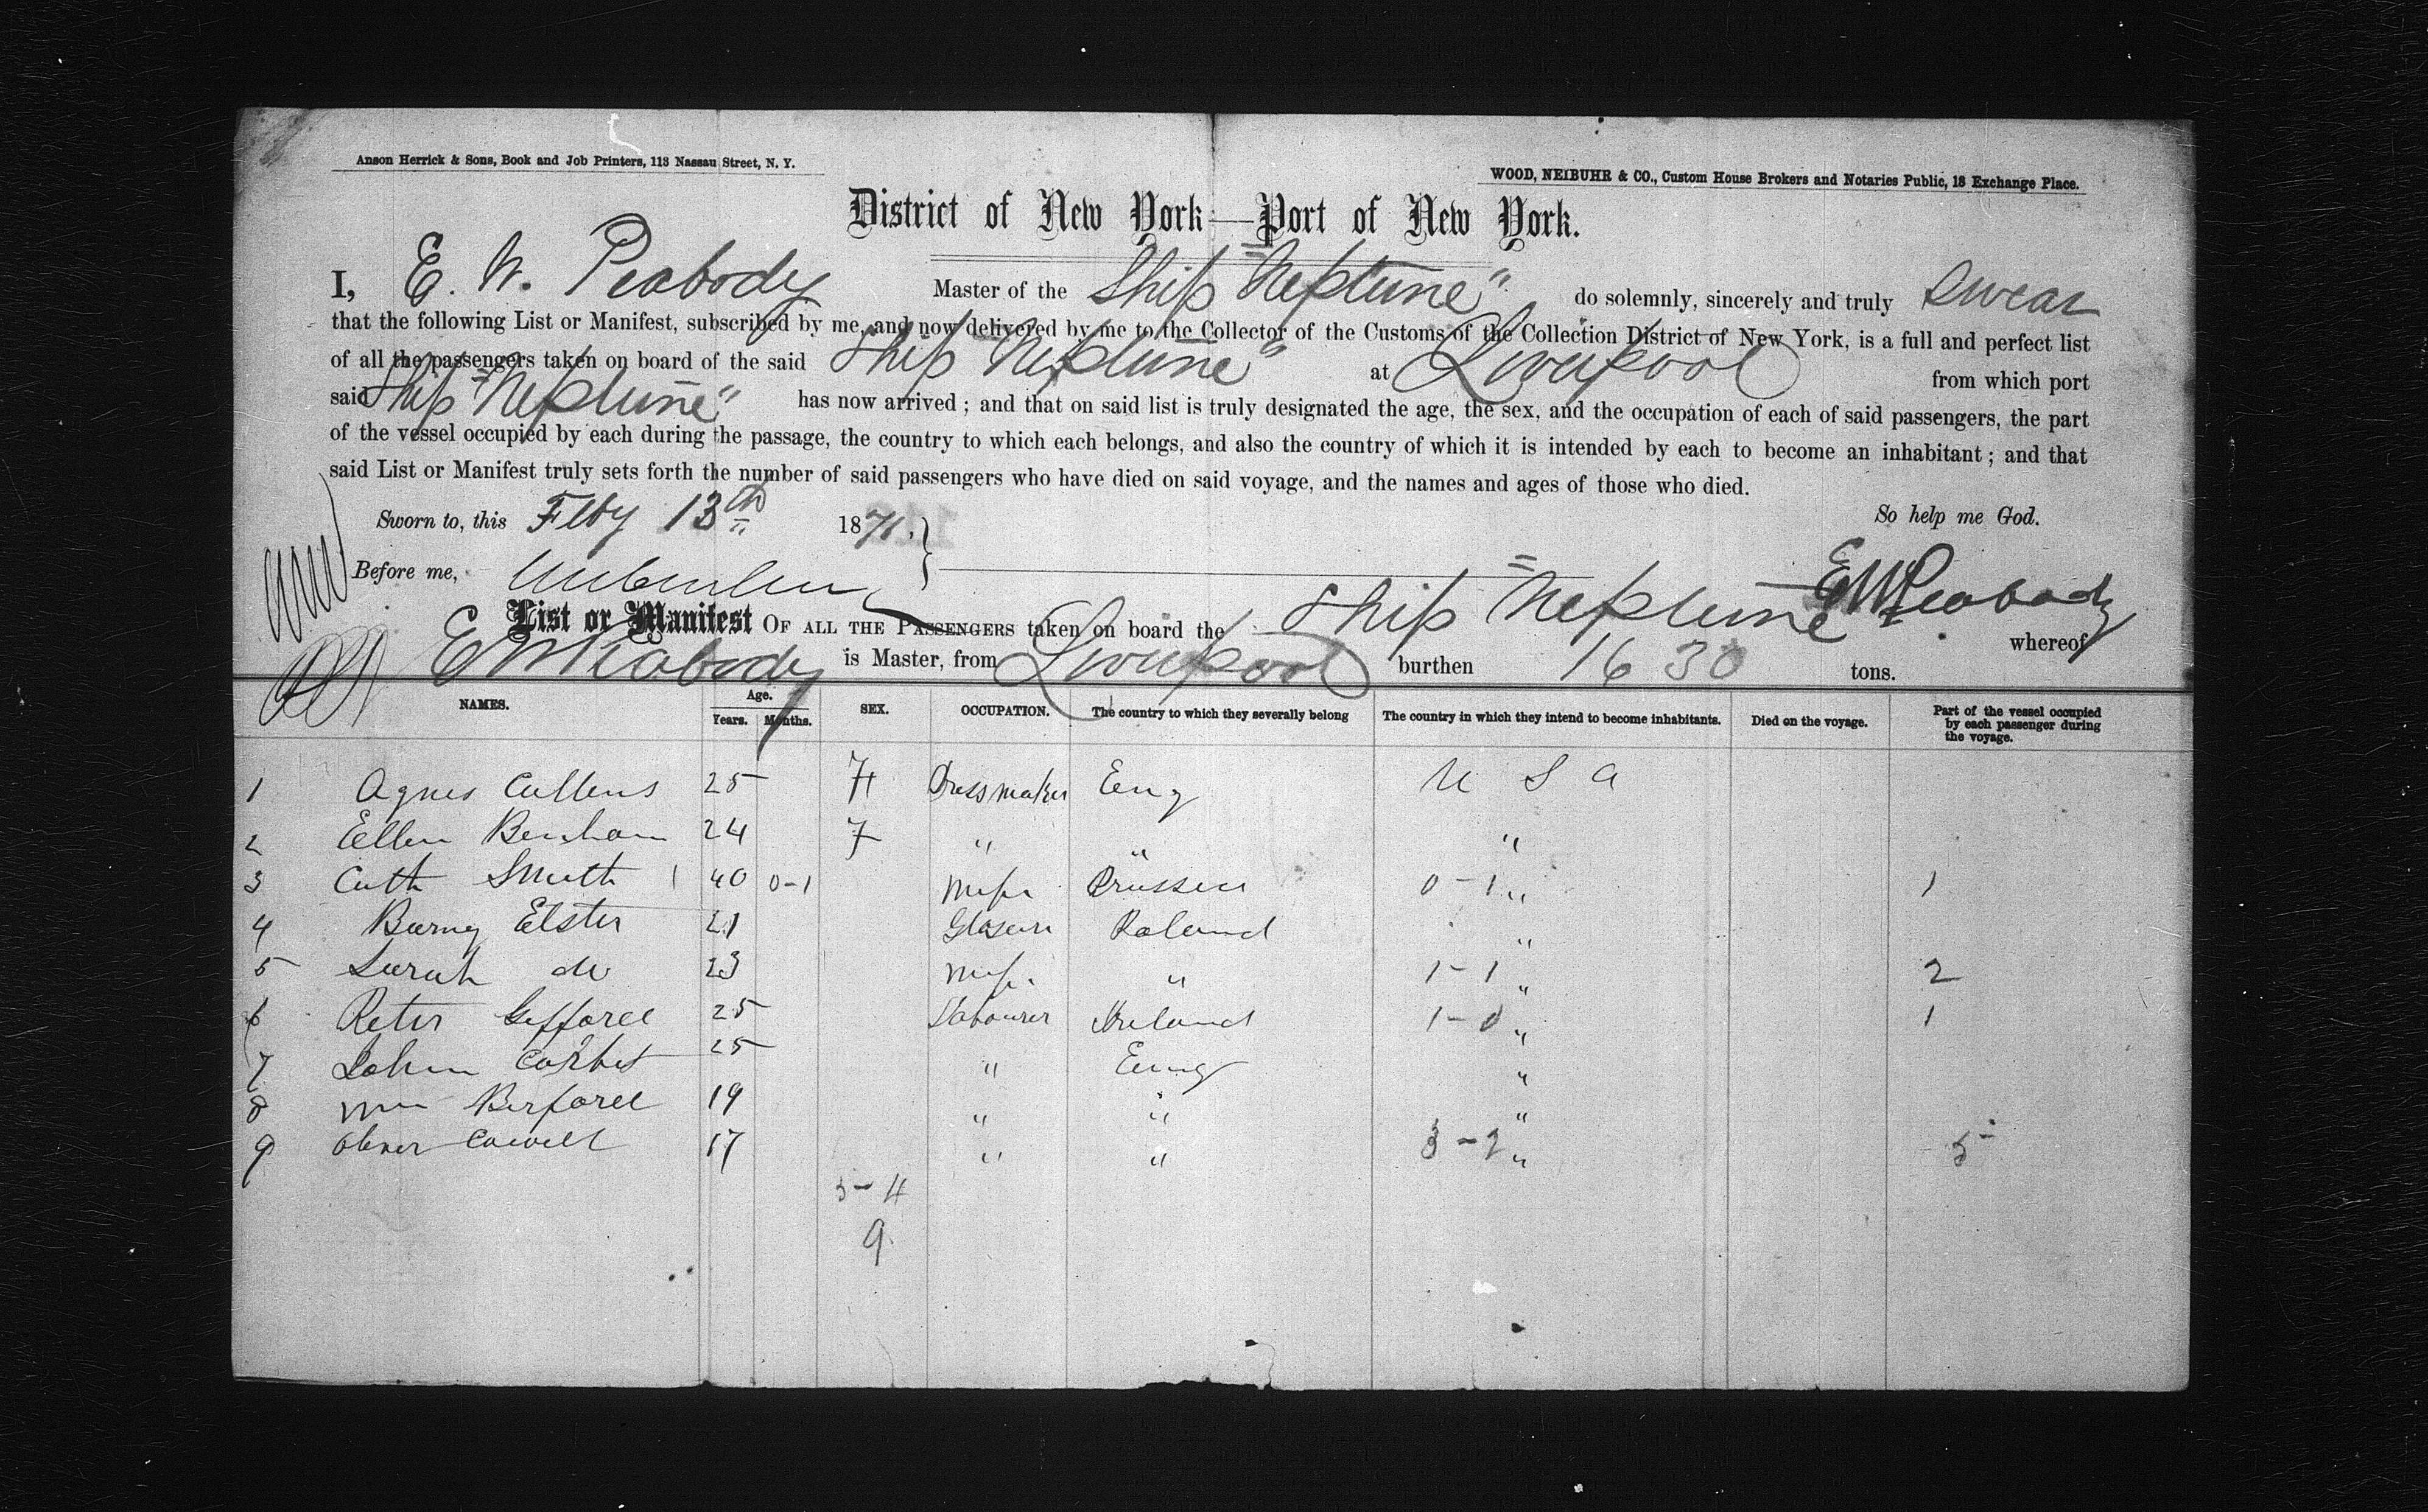 Anson Herrick & Sons, Book and Job Printers, 113 Nassau Street, N. Y.
WOOD, NEIBUHR & CO., Custom House Brokers and Notaries Public, 18 Exchange Place.
District of New York—Port of New York.
I, E. W. Peabody Master of the Ship "Neptune" do solemnly, sincerely and truly swear
that the following List or Manifest, subscribed by me, and now delivered by me to the Collector of the Customs of the Collection District of New York, is a full and perfect list
of all the passengers taken on board of the said Ship "Neptune" at Liverpool from which port
said Ship "Neptune" has now arrived ; and that on said list is truly designated the age, the sex, and the occupation of each of said passengers, the part
of the vessel occupied by each during the passage, the country to which each belongs, and also the country of which it is intended by each to become an inhabitant ; and that
said List or Manifest truly sets forth the number of said passengers who have died on said voyage, and the names and ages of those who died.
Sworn to, this Feby 13th 1871. So help me God.
Before me, EWPeabody
List or Manifest OF ALL THE PASSENGERS taken on board the Ship "Neptune whereof
EWPeabody is Master, from Liverpool burthen 1630 tons.
NAMES. Age. Years. Months. SEX. OCCUPATION. The country to which they severally belong The country in which they intend to become inhabitants. Died on the voyage. Part of the vessel occupied by each passenger during the voyage.
1 Agnes Cullens 25 Dressmaker Eng U S A
2 Ellen Benham 24 " " "
3 Smith 40 0-1 Prussen 0-1 " 1
4 Elster 21 Poland "
5 Sarah do 23 " 1-1 " 2
6 Peter 25 Labourer Ireland 1-0 " 1
7 John 25 " Eng "
8 Wm 19 " " "
9 17 " " 3-2 " 5
5-4
9